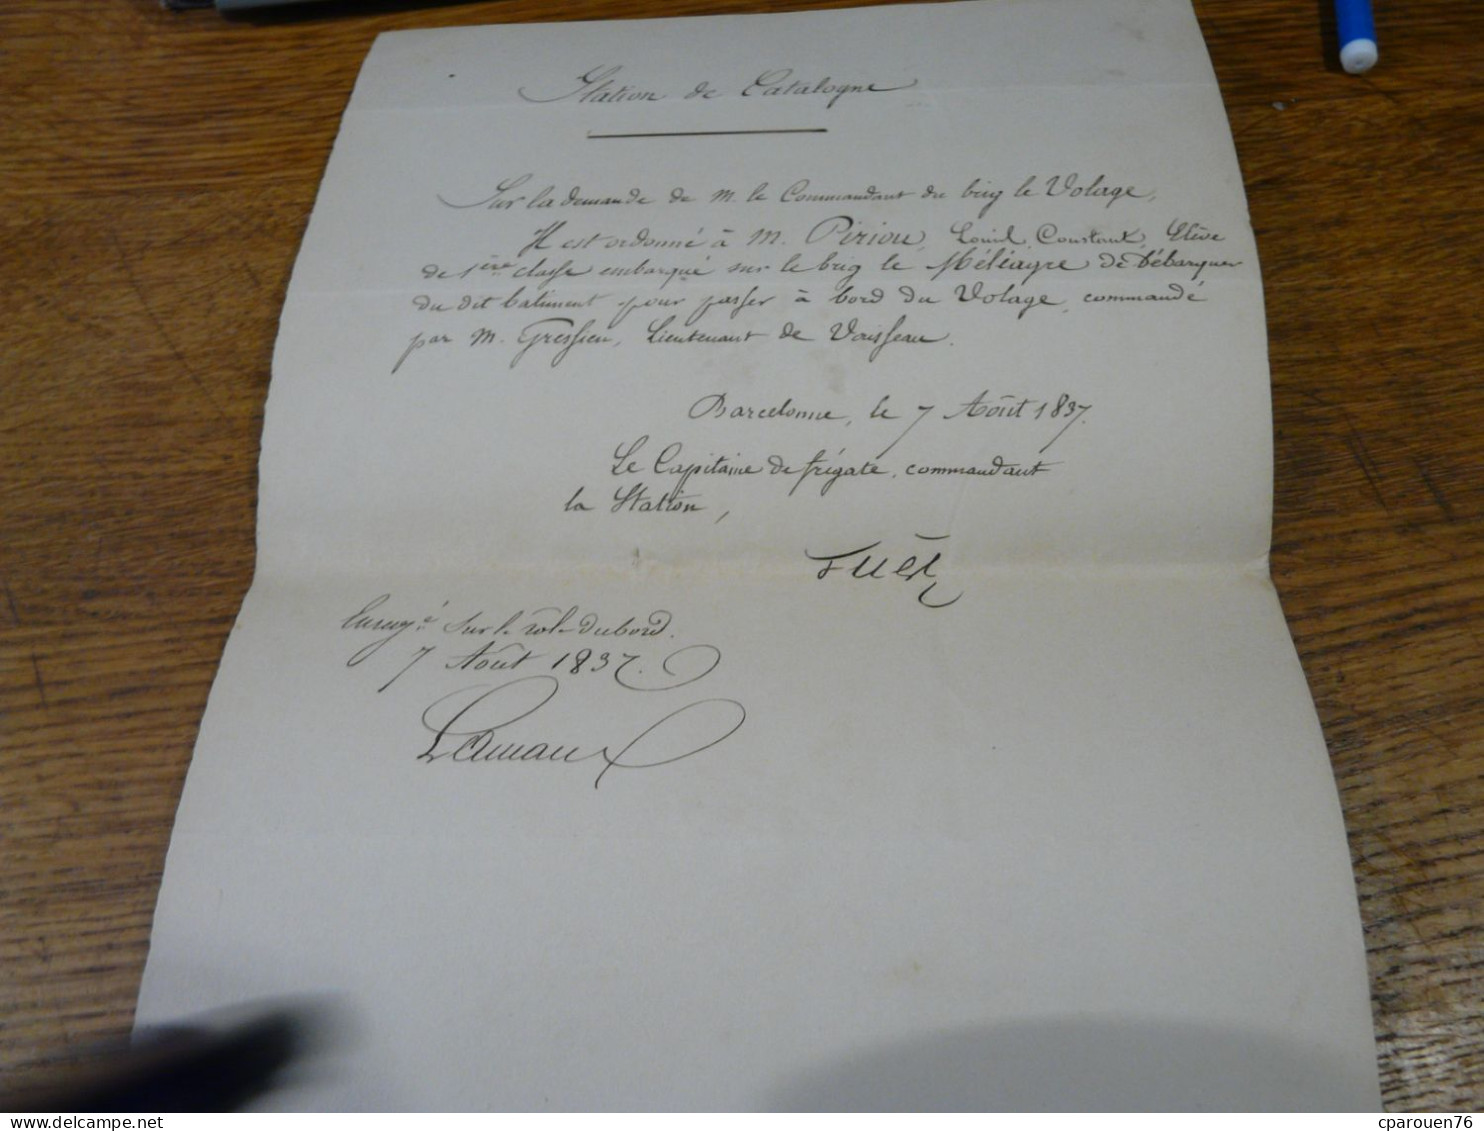 Station de Catalogne
Sur la demande de M. le Commandant du brig le Volage,
Il est ordonné à M. Piriou, Louis, Constant, Elève
de 1ère classe embarqué sur le brig le Méléagre de Débarquer
du dit bâtiment pour passer à bord du Volage, commandé
par M. Gressien, Lieutenant de Vaisseau.
Barcelonne, le 7 Août 1837.
Le Capitaine de frégate, commandant
la Station,
sur le rôle du bord.
7 Août 1837.
cparouen76